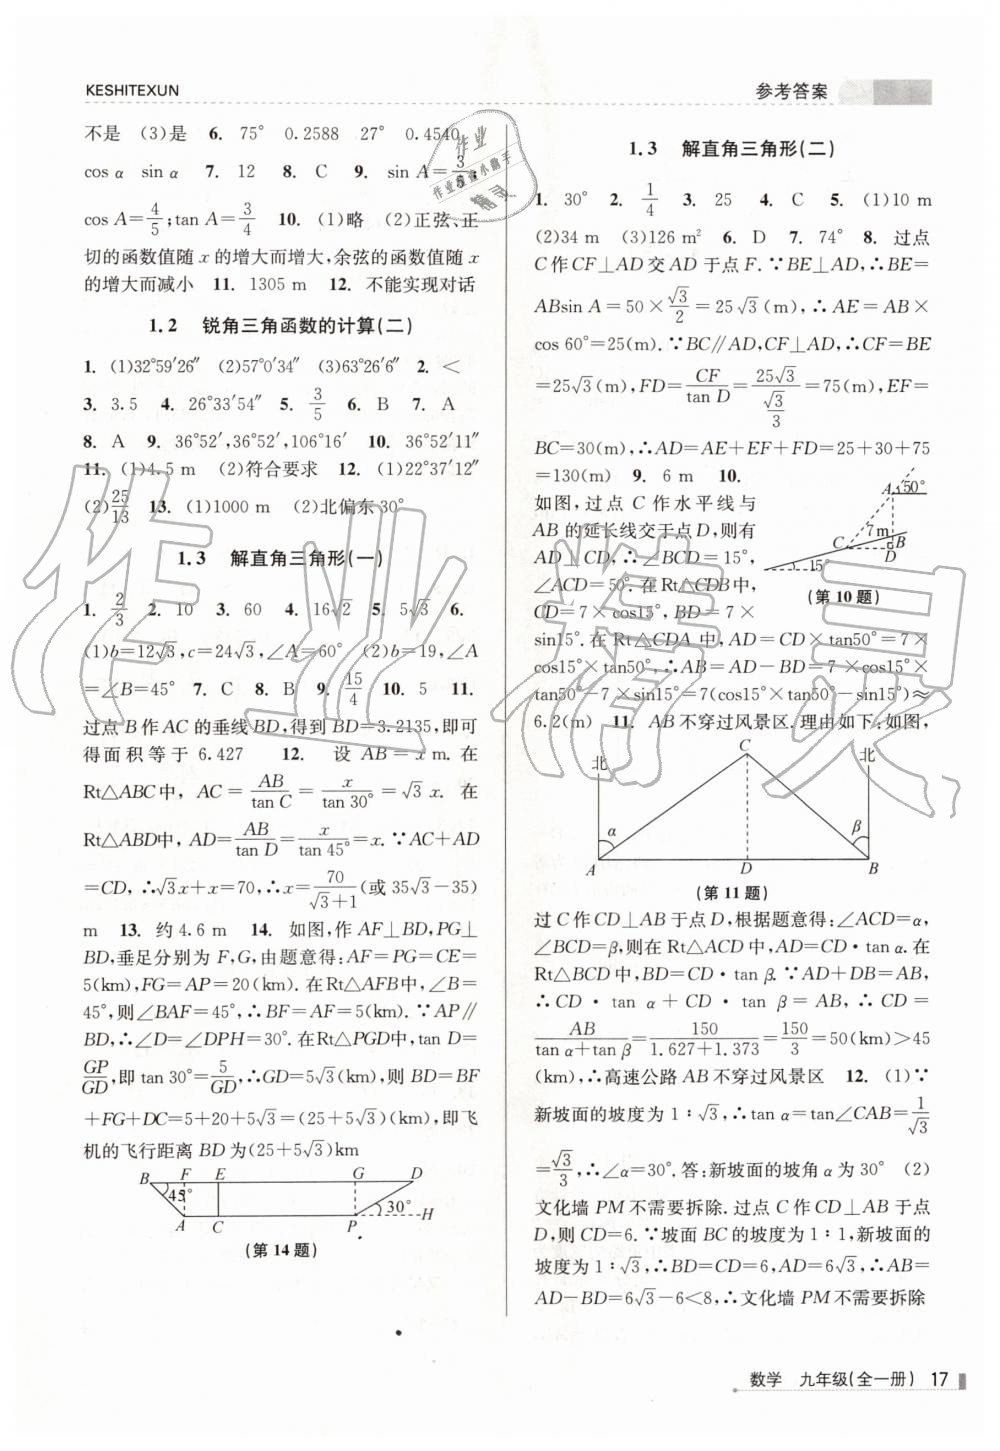 KESHITEXUN
参考答案
不是 (3)是 6. 75° 0.2588 27° 0.4540
cos α sin α 7. 12 8. C 9. sin A=3/5
cos A=4/5;tan A=3/4 10. (1)略 (2)正弦、正
切的函数值随 x 的增大而增大,余弦的函数值随 x
的增大而减小 11. 1305 m 12. 不能实现对话
1.2 锐角三角函数的计算(二)
1. (1)32°59′26″ (2)57°0′34″ (3)63°26′6″ 2. <
3. 3.5 4. 26°33′54″ 5. 3/5 6. B 7. A
8. A 9. 36°52′,36°52′,106°16′ 10. 36°52′11″
11. (1)4.5 m (2)符合要求 12. (1)22°37′12″
(2)25/13 13. (1)1000 m (2)北偏东30°
1.3 解直角三角形(一)
1. 2/3 2. 10 3. 60 4. 16√2 5. 5√3 6.
(1)b=12√3,c=24√3,∠A=60° (2)b=19,∠A
=∠B=45° 7. C 8. B 9. 15/4 10. 5 11.
过点 B 作 AC 的垂线 BD,得到 BD=3.2135,即可
得面积等于 6.427 12. 设 AB=x m.在
Rt△ABC中, AC=AB/tan C=x/tan 30°=√3 x. 在
Rt△ABD中,AD=AB/tan D=x/tan 45°=x.∵AC+AD
=CD,∴√3x+x=70,∴x=70/(√3+1)(或35√3-35)
m 13. 约4.6 m 14. 如图,作 AF⊥BD,PG⊥
BD,垂足分别为 F,G,由题意得:AF=PG=CE=
5(km),FG=AP=20(km).在Rt△AFB中,∠B=
45°,则∠BAF=45°,∴BF=AF=5(km).∵AP∥
BD,∴∠D=∠DPH=30°.在Rt△PGD中,tan D=
GP/GD,即tan 30°=5/GD,∴GD=5√3(km),则 BD=BF
+FG+DC=5+20+5√3=(25+5√3)(km),即飞
机的飞行距离 BD 为(25+5√3)km
B F E G D
45° 30°
A C P H
(第14题)
1.3 解直角三角形(二)
1. 30° 2. 1/4 3. 25 4. C 5. (1)10 m
(2)34 m (3)126 m² 6. D 7. 74° 8. 过点
C作CF⊥AD交 AD 于点 F.∵BE⊥AD,∴BE=
ABsin A=50×√3/2=25√3(m),∴AE=AB×
cos 60°=25(m).∵BC∥AD,CF⊥AD,∴CF=BE
=25√3(m),FD=CF/tan D=25√3/(√3/3)=75(m),EF=
BC=30(m),∴AD=AE+EF+FD=25+30+75
=130(m) 9. 6 m 10.
如图,过点 C 作水平线与
AB 的延长线交于点 D,则有
AD⊥CD,∴∠BCD=15°,
∠ACD=50°.在Rt△CDB中,
CD=7×cos15°,BD=7×
sin15°.在 Rt△CDA 中,AD=CD×tan50°=7×
cos15°×tan50°,∴AB=AD-BD=7×cos15°×
tan50°-7×sin15°=7(cos15°×tan50°-sin15°)≈
6.2(m) 11. AB不穿过风景区.理由如下:如图,
A 50°
7 m
C B
D
15°
(第10题)
C
北 北
α β
A D B
(第11题)
过 C 作 CD⊥AB 于点 D,根据题意得:∠ACD=α,
∠BCD=β,则在 Rt△ACD 中,AD=CD·tan α.在
Rt△BCD 中,BD=CD·tan β.∵AD+DB=AB,
∴CD·tan α+CD·tan β=AB,∴CD=
AB/(tan α+tan β)=150/(1.627+1.373)=150/3=50(km)>45
(km),∴高速公路 AB 不穿过风景区 12. (1)∵
新坡面的坡度为1∶√3,∴tan α=tan∠CAB=1/√3
=√3/3,∴∠α=30°.答:新坡面的坡角α为30° (2)
文化墙 PM 不需要拆除.过点 C 作 CD⊥AB 于点
D,则 CD=6.∵坡面 BC 的坡度为1∶1,新坡面的
坡度为1∶√3,∴BD=CD=6,AD=6√3,∴AB=
AD-BD=6√3-6<8,∴文化墙 PM 不需要拆除
数学 九年级(全一册) 17
作业精灵